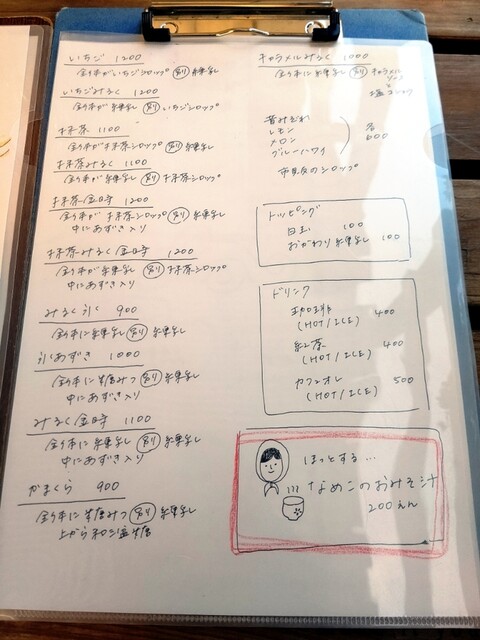 いちご 1200
全体がいちごシロップ 別り 練乳
いちごみるく 1200
全体が練乳 別り いちごシロップ
抹茶 1100
全体が抹茶シロップ 別り 練乳
抹茶みるく 1100
全体が練乳 別り 抹茶シロップ
抹茶金時 1200
全体が抹茶シロップ 別り 練乳
中にあずき入り
抹茶みるく金時 1200
全体が練乳 別り 抹茶シロップ
中にあずき入り
みるく氷 900
全体に練乳 別り 練乳
氷あずき 1000
全体に糖みつ 別り 練乳
中にあずき入り
みるく金時 1100
全体に練乳 別り 練乳
中にあずき入り
かまくら 900
全体に糖みつ 別り 練乳
上から和三盆糖
キャラメルみるく 1000
全体に練乳 別り キャラメル
ソース
塩コンク
昔みぞれ
レモン
メロン
ブルーハワイ
各
600
市販のシロップ
トッピング
白玉 100
おかわり練乳 100
ドリンク
珈琲 400
(HOT/ICE)
紅茶 400
(HOT/ICE)
カフェオレ 500
(HOT/ICE)
ほっとする…
なめこのおみそ汁
200えん